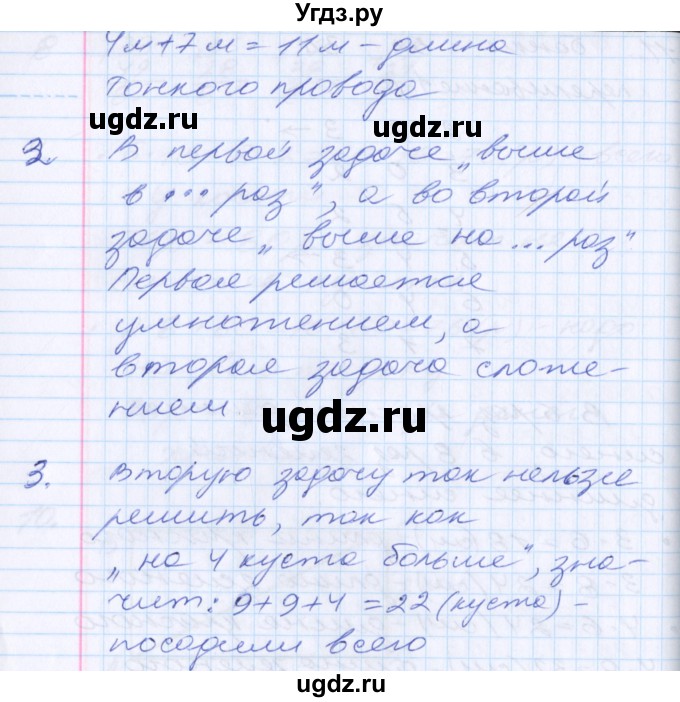 Угдз.ру
4м+7м = 11м – длина
тонкого провода
ugdz.ru
ugdz.ru
2. В первой задаче „выше
в ... раз", а во второй
задаче „ выше на ... раз"
Первая решается
умножением, а
вторая задача сложе-
нием
ugdz.ru
3. Вторую задачу так нельзя
решить, так как
„на 4 куста больше", зна-
чит: 9+9+4 = 22 (куста) –
ugdz.ru
посадили всего
ugdz.ru